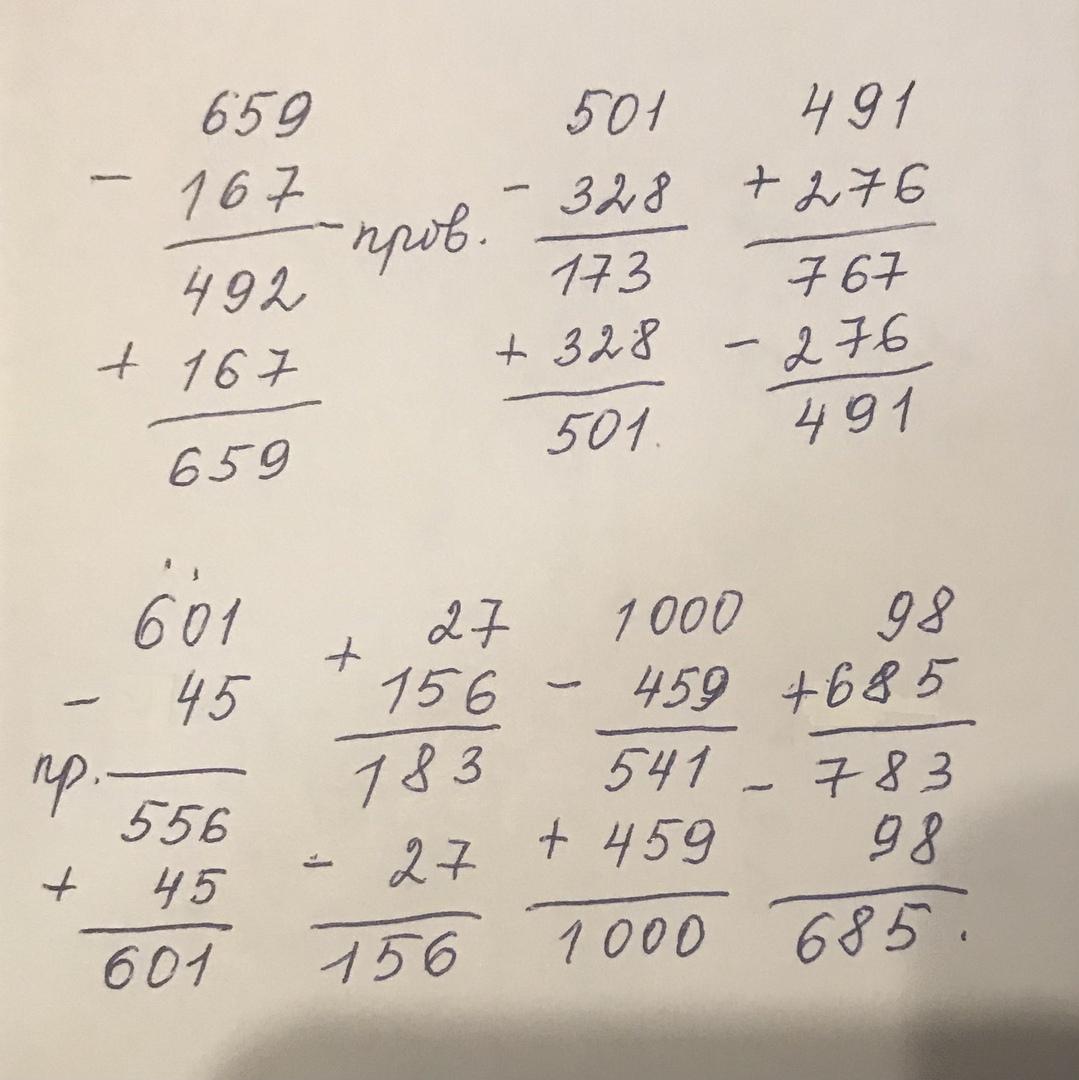 659 501 491
- 167 - 328 + 276
- пров.
492 173 767
+ 167 + 328 - 276
659 501. 491
601 27 1000 98
- 45 + 156 - 459 +685
пр.
556 183 541 783
+ 45 - 27 + 459 - 98
601 156 1000 685.